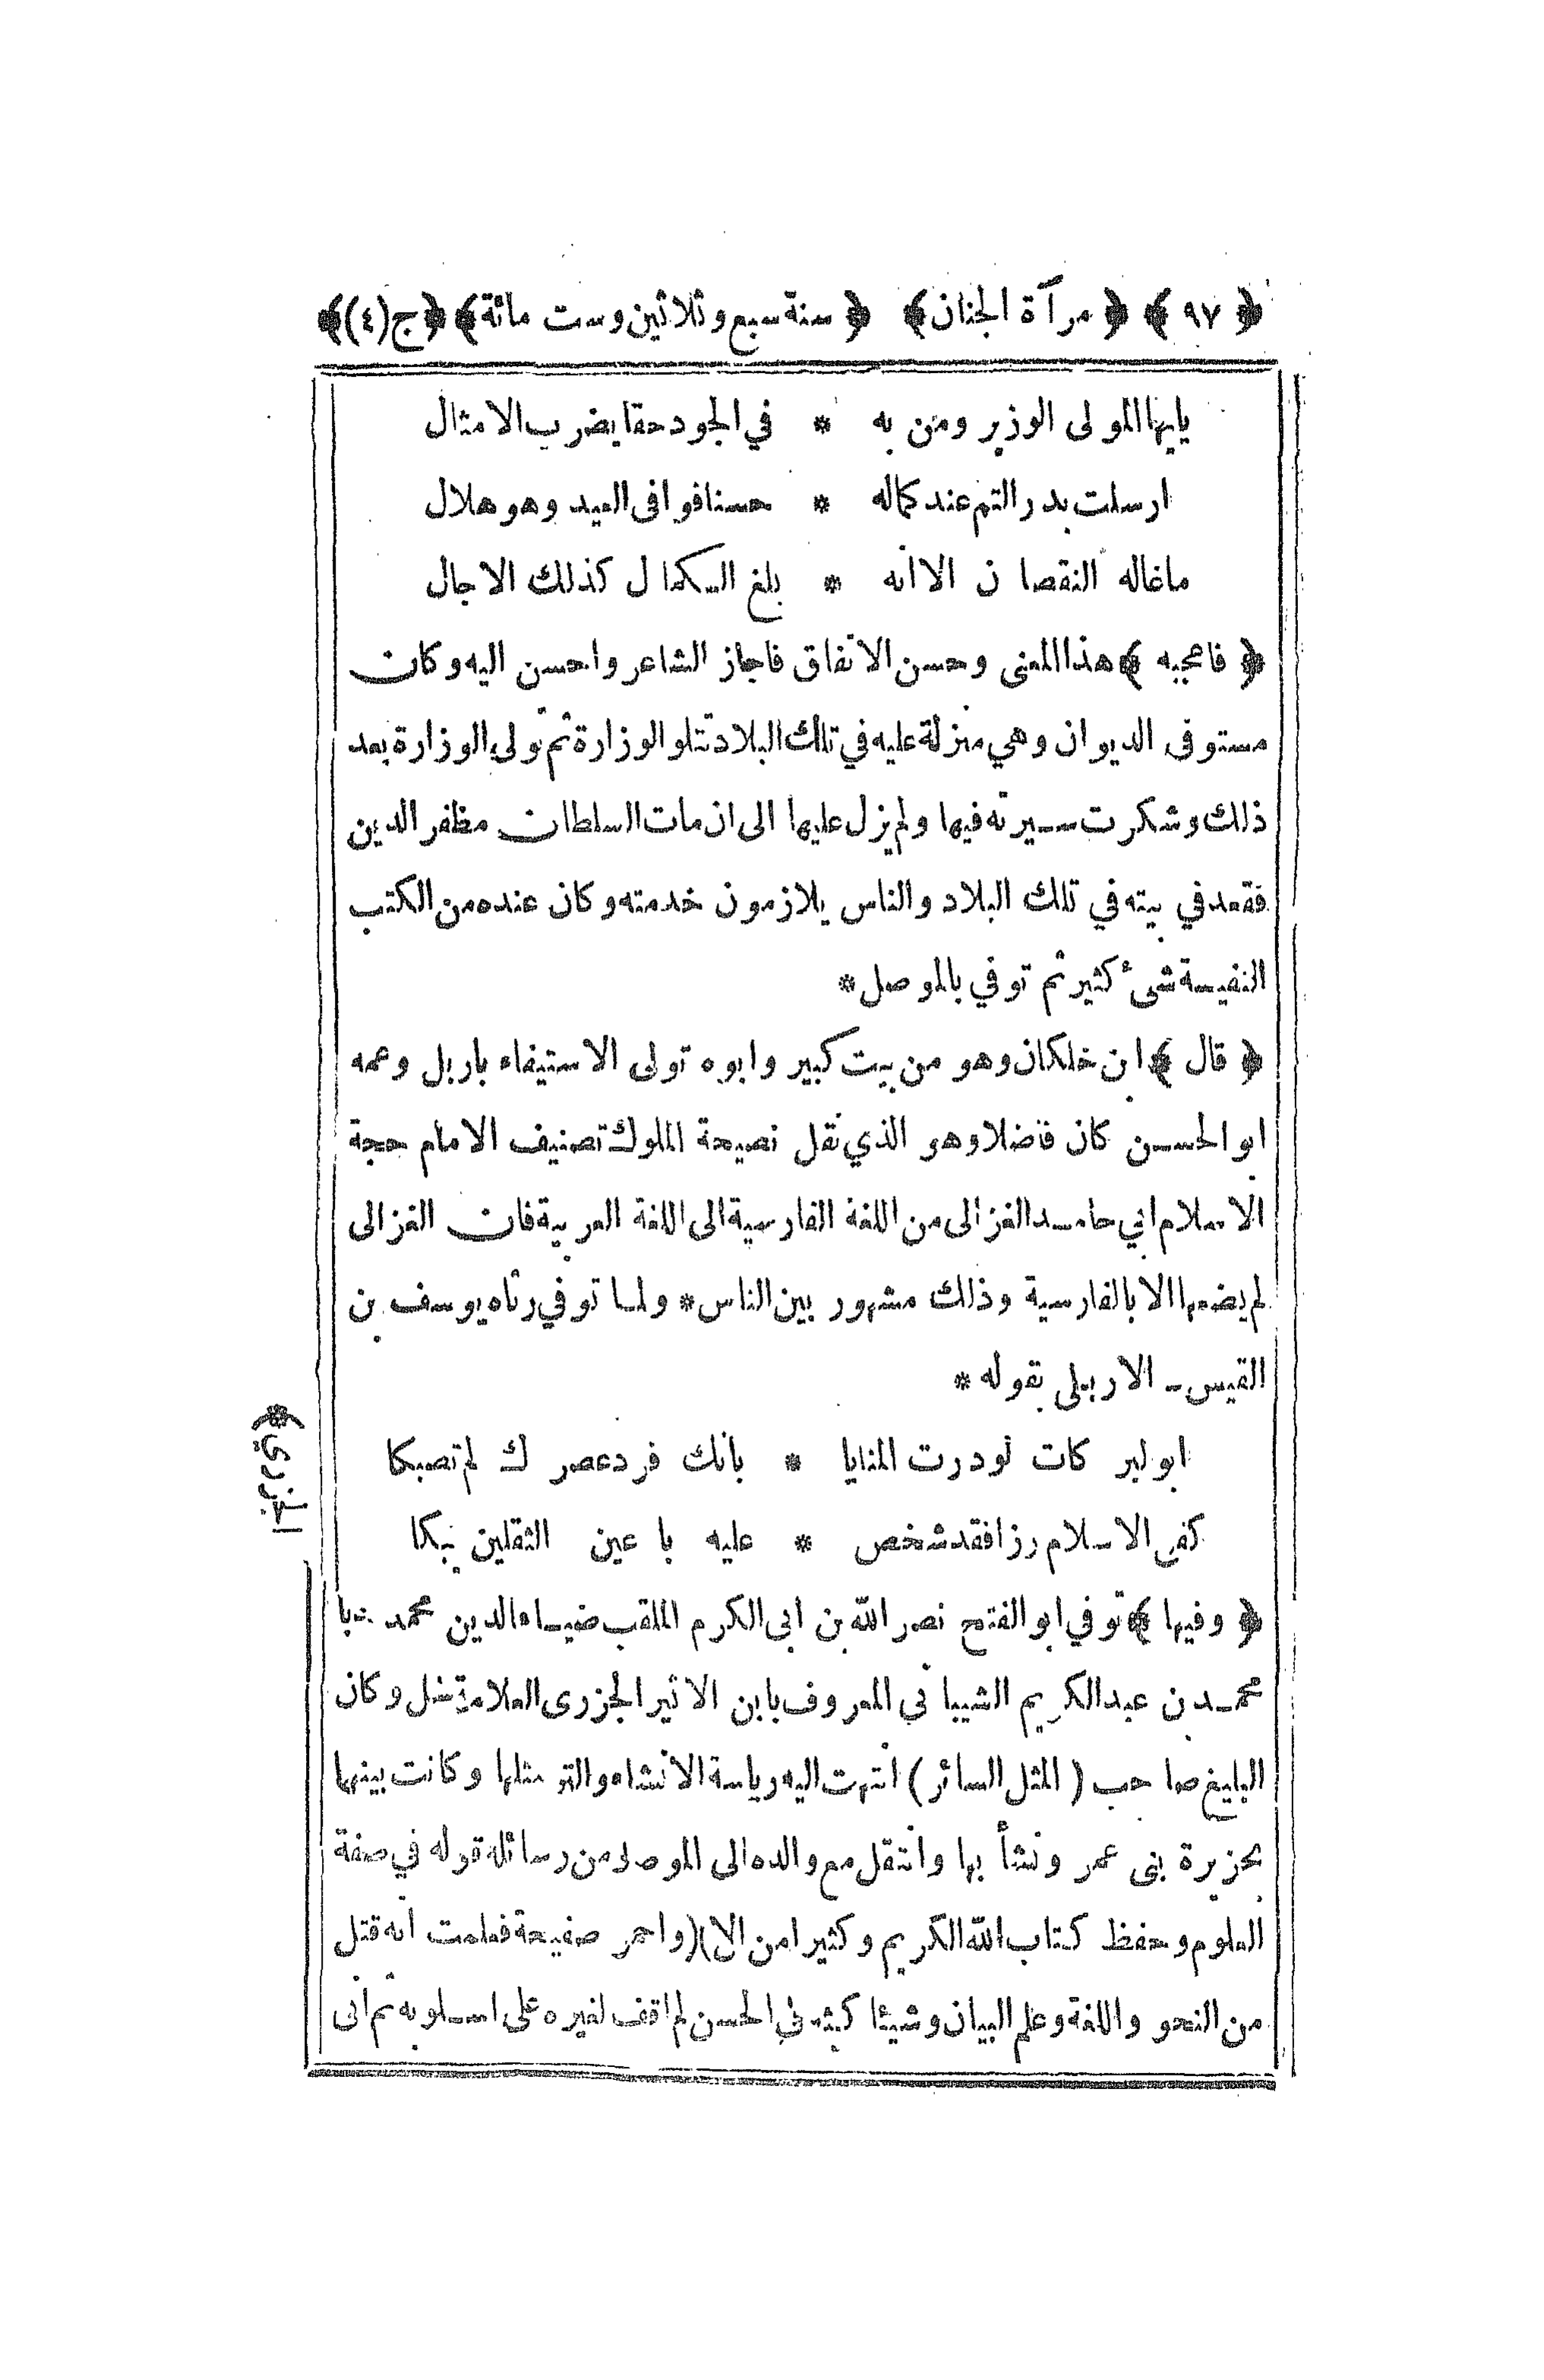 ﴿ ٩٧ ﴾ ﴿ مرآة الجنان ﴾ ﴿ سنة سبع وثلاثين وست مائة ﴾ ﴿ ج (٤) ﴾
يايها المولى الوزير ومن به * في الجود حقا يضرب الامثال
ارسلت بدر التم عند كماله * حسنا فوافى العيد وهو هلال
ماغاله النقصان الا انه * بلغ الكمال كذلك الاجال
﴿ فاعجبه ﴾ هذا المعنى وحسن الاتفاق فاجاز الشاعر واحسن اليه وكان
مستوفى الديوان وهي منزلة عليه في تلك البلاد تتلو الوزارة ثم تولى الوزارة بعد
ذلك وشكرت سيرته فيها ولم يزل عليها الى ان مات السلطان مظفر الدين
فقعد في بيته في تلك البلاد والناس يلازمون خدمته وكان عنده من الكتب
النفيسة شئ كثير ثم توفي بالموصل *
﴿ قال ﴾ ابن خلكان وهو من بيت كبير وابوه تولى الاستيفاء باربل وعمه
ابو الحسن كان فاضلا وهو الذي نقل نصيحة الملوك تصنيف الامام حجة
الاسلام ابي حامد الغزالى من اللغة الفارسية الى اللغة العربية فان الغزالى
لم يضعها الا بالفارسية وذلك مشهور بين الناس * ولما توفي رثاه يوسف بن
القيس الاربلى بقوله *
ابو لبر كات لو درت المنايا * بانك فرد عصرك لم تصبكا
كفى الاسلام رزا فقد شخص * عليه با عين الثقلين يبكا
﴿ وفيها ﴾ توفي ابو الفتح نصر الله بن ابى الكرم الملقب ضياء الدين محمد
محمد بن عبد الكريم الشيباني المعروف بابن الاثير الجزرى العلامة وكان
البليغ صاحب ( المثل السائر ) انتهت اليه رياسة الانشاء والتر وكانت بينهما
بجزيرة بنى عمر ونشأ بها وانتقل مع والده الى الموصل من رسائله قوله في صفة
العلوم وحفظ كتاب الله الكريم وكثيرا من الا ) (واحمر صفيحة فعلمت انه قتل
من النحو واللغة وعلم البيان وشيئا في الحسن لم اقف لغيره على اسلوبه ثم انى
الجزري ﴾